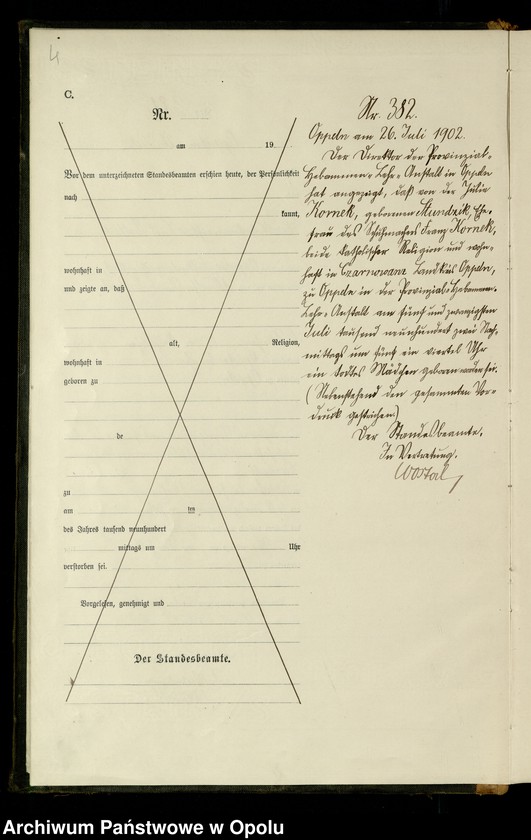 4
C.
Nr.
am 19
Vor dem unterzeichneten Standesbeamten erschien heute, der Persönlichkeit
nach
kannt,
wohnhaft in
und zeigte an, daß
alt, Religion,
wohnhaft in
geboren zu
de
zu
am ten
des Jahres tausend neunhundert
mittags um Uhr
verstorben sei.
Vorgelesen, genehmigt und
Der Standesbeamte.
Nr. 382.
Oppeln am 26. Juli 1902.
Der Direktor der Provinzial-
Hebammen-Lehr-Anstalt in Oppeln
hat angezeigt, daß von der Julie
Kornek, geborenen Skundrik, Ehe-
frau des Schuhmachers Franz Kornek,
beide katholischer Religion und wohn-
haft in Czarnowanz Landkreis Oppeln,
zu Oppeln in der Provinzial-Hebammen-
Lehr-Anstalt am fünf und zwanzigsten
Juli tausend neunhundert zwei Nach-
mittags um fünf ein viertel Uhr
ein todtes Mädchen geboren worden sei.
(Nebenstehend den gesammten Vor-
druck gestrichen)
Der Standesbeamte.
In Vertretung.
Wostal
Archiwum Państwowe w Opolu